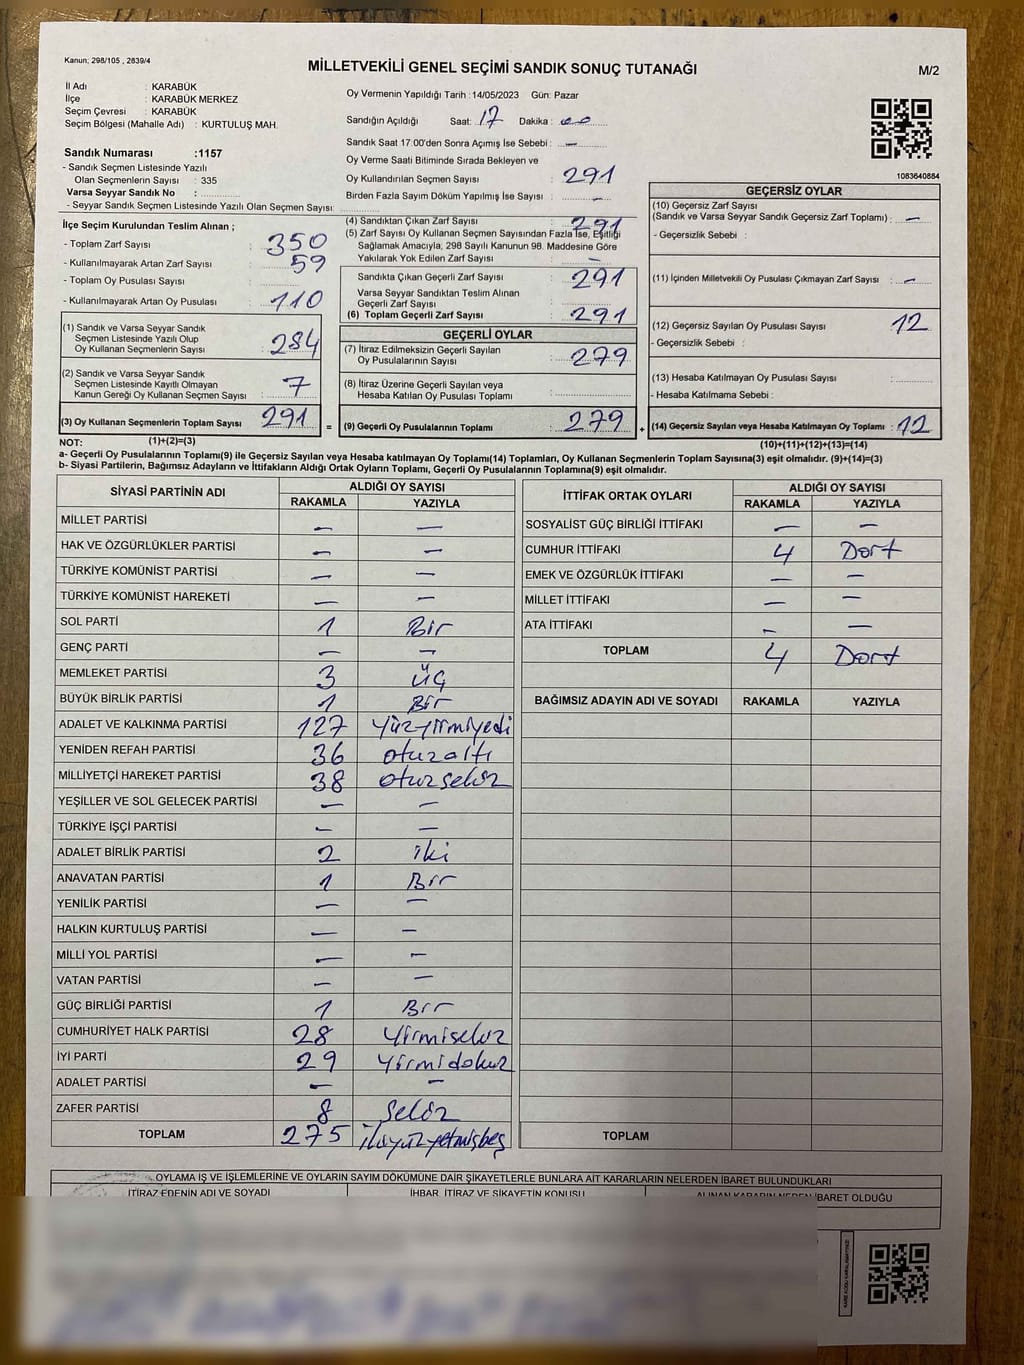 Kanun; 298/105 , 2839/4
MİLLETVEKİLİ GENEL SEÇİMİ SANDIK SONUÇ TUTANAĞI
M/2
İl Adı : KARABÜK
İlçe : KARABÜK MERKEZ
Seçim Çevresi : KARABÜK
Seçim Bölgesi (Mahalle Adı) : KURTULUŞ MAH.
Sandık Numarası :1157
- Sandık Seçmen Listesinde Yazılı
Olan Seçmenlerin Sayısı : 335
Varsa Seyyar Sandık No :
- Seyyar Sandık Seçmen Listesinde Yazılı Olan Seçmen Sayısı:
Oy Vermenin Yapıldığı Tarih :14/05/2023 Gün: Pazar
Sandığın Açıldığı Saat: 17 Dakika : 00
Sandık Saat 17:00'den Sonra Açımış İse Sebebi : —
Oy Verme Saati Bitiminde Sırada Bekleyen ve
Oy Kullandırılan Seçmen Sayısı : 291
Birden Fazla Sayım Döküm Yapılmış İse Sayısı : —
1083640884
İlçe Seçim Kurulundan Teslim Alınan ;
- Toplam Zarf Sayısı : 350
- Kullanılmayarak Artan Zarf Sayısı : 59
- Toplam Oy Pusulası Sayısı :
- Kullanılmayarak Artan Oy Pusulası : 110
(1) Sandık ve Varsa Seyyar Sandık
Seçmen Listesinde Yazılı Olup
Oy Kullanan Seçmenlerin Sayısı : 284
(2) Sandık ve Varsa Seyyar Sandık
Seçmen Listesinde Kayıtlı Olmayan
Kanun Gereği Oy Kullanan Seçmen Sayısı : 7
(3) Oy Kullanan Seçmenlerin Toplam Sayısı : 291 =
(4) Sandıktan Çıkan Zarf Sayısı : 291
(5) Zarf Sayısı Oy Kullanan Seçmen Sayısından Fazla İse, Eşitliği
Sağlamak Amacıyla; 298 Sayılı Kanunun 98. Maddesine Göre
Yakılarak Yok Edilen Zarf Sayısı : —
Sandıkta Çıkan Geçerli Zarf Sayısı : 291
Varsa Seyyar Sandıktan Teslim Alınan
Geçerli Zarf Sayısı :
(6) Toplam Geçerli Zarf Sayısı : 291
GEÇERLİ OYLAR
(7) İtiraz Edilmeksizin Geçerli Sayılan
Oy Pusulalarının Sayısı : 279
(8) İtiraz Üzerine Geçerli Sayılan veya
Hesaba Katılan Oy Pusulası Toplamı :
(9) Geçerli Oy Pusulalarının Toplamı : 279 +
GEÇERSİZ OYLAR
(10) Geçersiz Zarf Sayısı
(Sandık ve Varsa Seyyar Sandık Geçersiz Zarf Toplamı) : —
- Geçersizlik Sebebi :
(11) İçinden Milletvekili Oy Pusulası Çıkmayan Zarf Sayısı : —
(12) Geçersiz Sayılan Oy Pusulası Sayısı : 12
- Geçersizlik Sebebi :
(13) Hesaba Katılmayan Oy Pusulası Sayısı :
- Hesaba Katılmama Sebebi :
(14) Geçersiz Sayılan veya Hesaba Katılmayan Oy Toplamı : 12
NOT: (1)+(2)=(3) (10)+(11)+(12)+(13)=(14)
a- Geçerli Oy Pusulalarının Toplamı(9) ile Geçersiz Sayılan veya Hesaba katılmayan Oy Toplamı(14) Toplamları, Oy Kullanan Seçmenlerin Toplam Sayısına(3) eşit olmalıdır. (9)+(14)=(3)
b- Siyasi Partilerin, Bağımsız Adayların ve İttifakların Aldığı Ortak Oyların Toplamı, Geçerli Oy Pusulalarının Toplamına(9) eşit olmalıdır.
SİYASİ PARTİNİN ADI ALDIĞI OY SAYISI
RAKAMLA YAZIYLA
MİLLET PARTİSİ — —
HAK VE ÖZGÜRLÜKLER PARTİSİ — —
TÜRKİYE KOMÜNİST PARTİSİ — —
TÜRKİYE KOMÜNİST HAREKETİ — —
SOL PARTİ 1 Bir
GENÇ PARTİ — —
MEMLEKET PARTİSİ 3 üç
BÜYÜK BİRLİK PARTİSİ 1 Bir
ADALET VE KALKINMA PARTİSİ 127 yüzyirmiyedi
YENİDEN REFAH PARTİSİ 36 otuzaltı
MİLLİYETÇİ HAREKET PARTİSİ 38 otuzsekiz
YEŞİLLER VE SOL GELECEK PARTİSİ — —
TÜRKİYE İŞÇİ PARTİSİ — —
ADALET BİRLİK PARTİSİ 2 iki
ANAVATAN PARTİSİ 1 Bir
YENİLİK PARTİSİ — —
HALKIN KURTULUŞ PARTİSİ — —
MİLLİ YOL PARTİSİ — —
VATAN PARTİSİ — —
GÜÇ BİRLİĞİ PARTİSİ 1 Bir
CUMHURİYET HALK PARTİSİ 28 yirmisekiz
İYİ PARTİ 29 yirmidokuz
ADALET PARTİSİ — —
ZAFER PARTİSİ 8 sekiz
TOPLAM 275 ikiyüzyetmişbeş
İTTİFAK ORTAK OYLARI ALDIĞI OY SAYISI
RAKAMLA YAZIYLA
SOSYALİST GÜÇ BİRLİĞİ İTTİFAKI — —
CUMHUR İTTİFAKI 4 Dort
EMEK VE ÖZGÜRLÜK İTTİFAKI — —
MİLLET İTTİFAKI — —
ATA İTTİFAKI — —
TOPLAM 4 Dort
BAĞIMSIZ ADAYIN ADI VE SOYADI RAKAMLA YAZIYLA
TOPLAM
OYLAMA İŞ VE İŞLEMLERİNE VE OYLARIN SAYIM DÖKÜMÜNE DAİR ŞİKAYETLERLE BUNLARA AİT KARARLARIN NELERDEN İBARET BULUNDUKLARI
İTİRAZ EDENİN ADI VE SOYADI İHBAR, İTİRAZ VE ŞİKAYETİN KONUSU ALINAN KARARIN NEDEN İBARET OLDUĞU